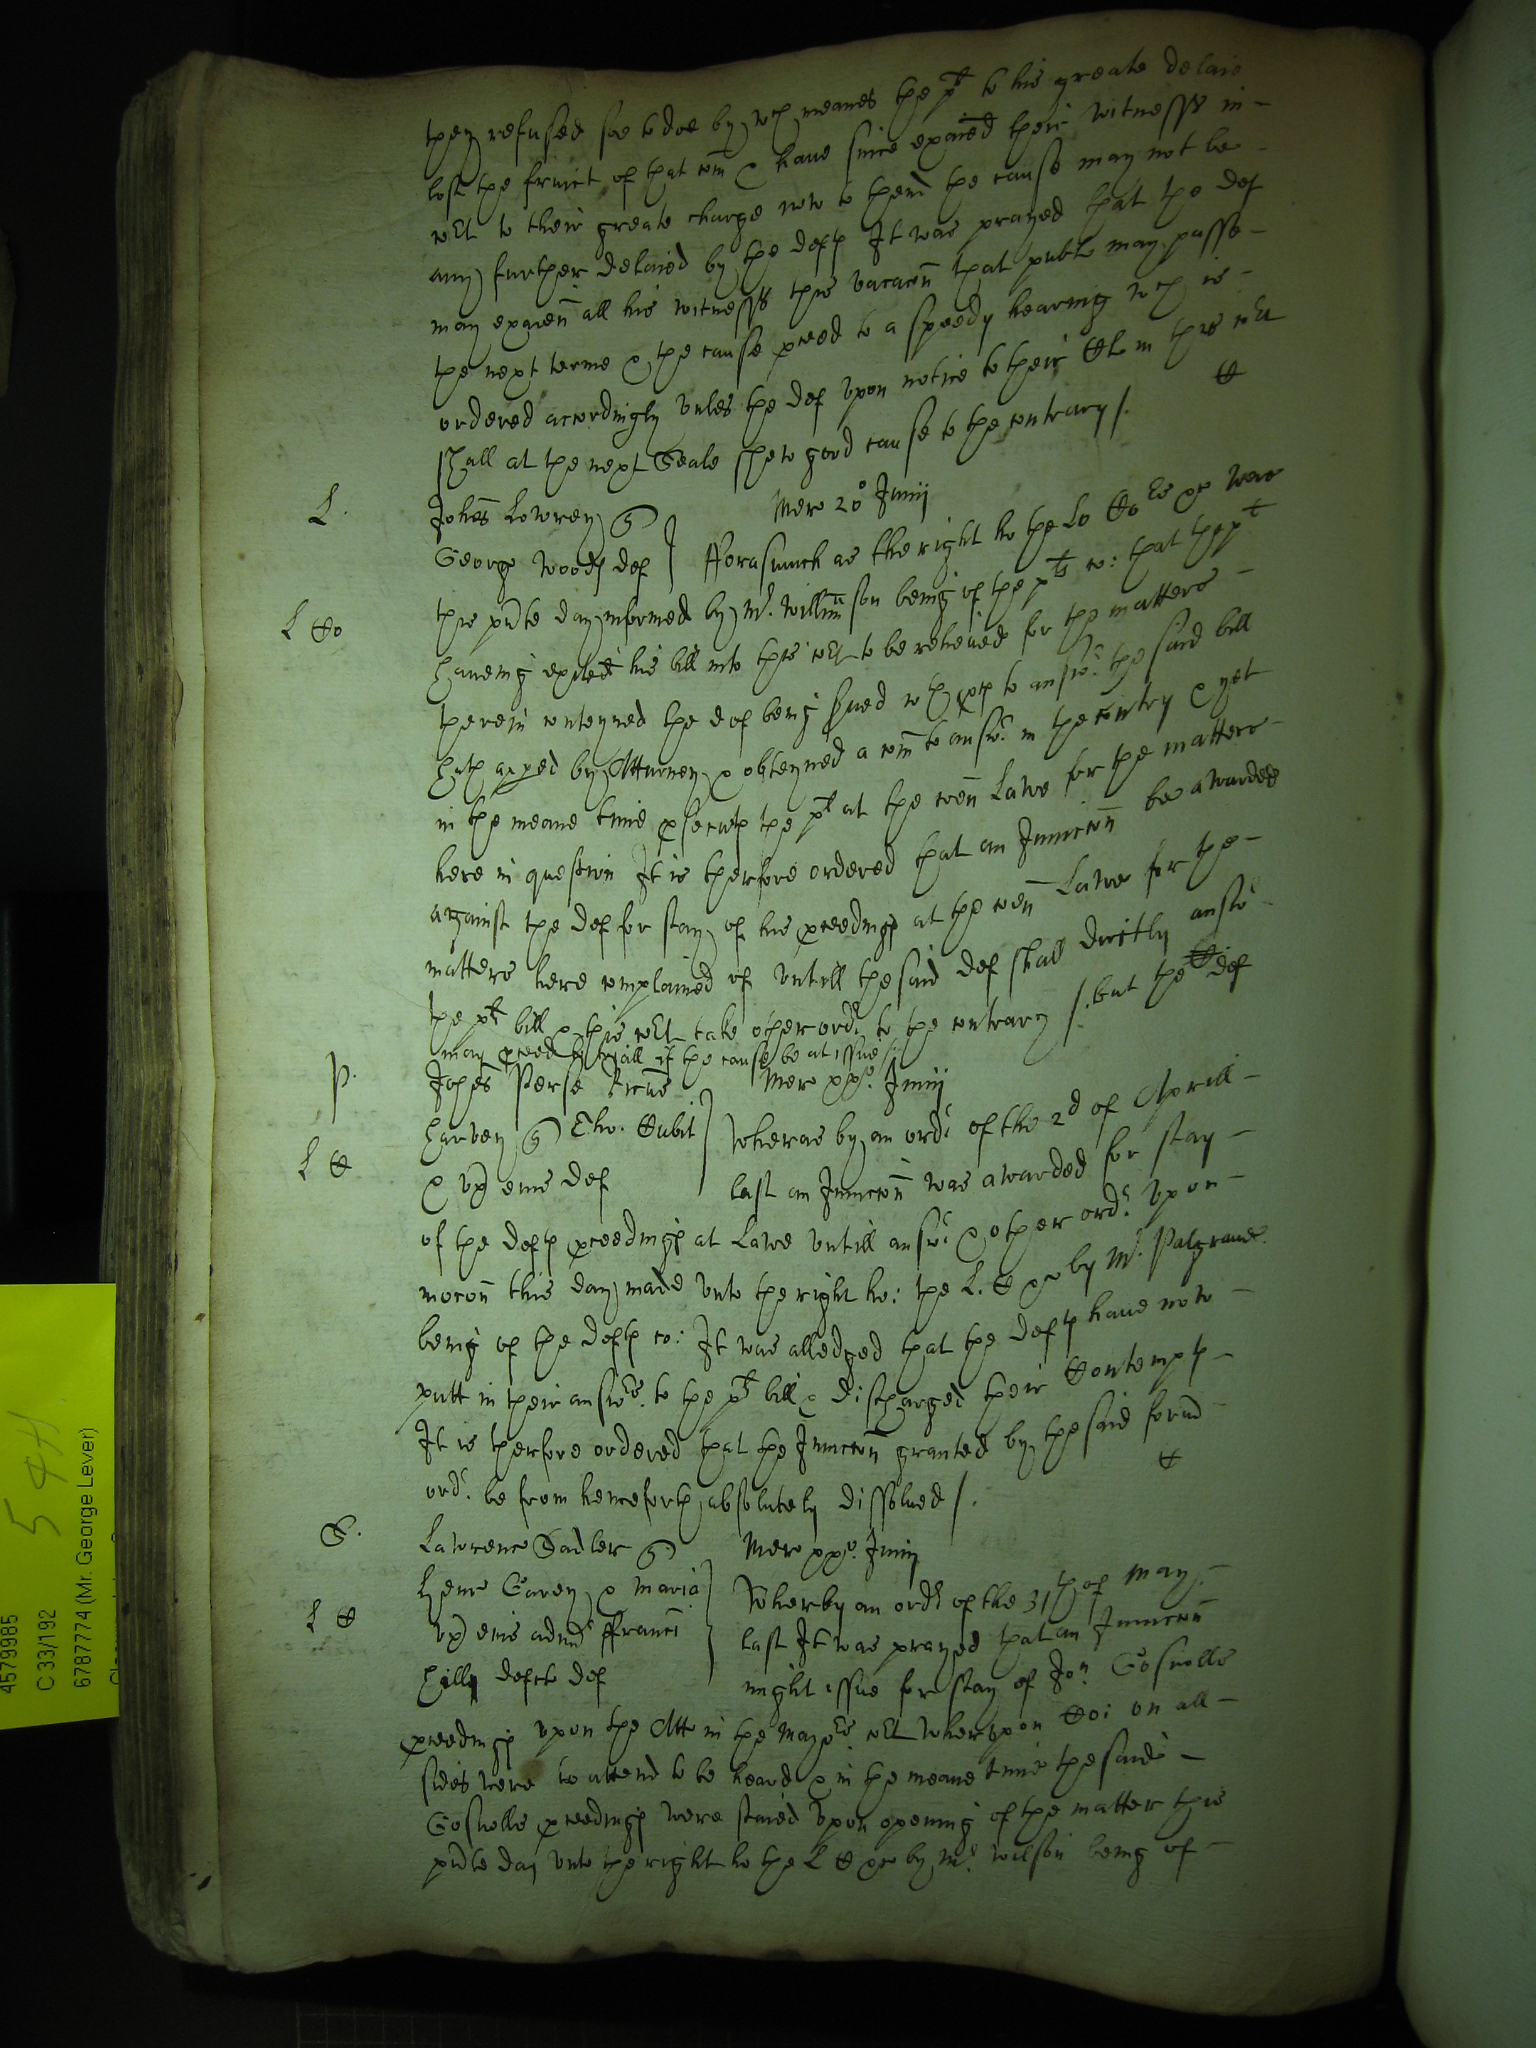 they refused soe to doe by wch meanes the plt to his greate delaie
lost the fruict of that com & haue since exaied their witnesses in
cot to their greate charge now to thend the cause may not be
any further delaied by the defts It was prayed that the def
may exaien all his witnesses this vacacon that publc may passe
the next terme & the cause pceed to a speedy hearing wch is
ordered accordingly vnles the def vpon notice to their Cl in this cot
shall at the next Seale shew good cause to the contrary /. C
L. Johes Lowrey q Merc 20o Junij
George Woods def fforasmuch as the right ho the Lo Co: &c was
L Co this pnte day informed by Mr. Willmson being of the plts co: that the plt
haueing exhted his bill into this cot to be releiued for the matters
therein conteyned the def being srued wth pces to answr the said bill
hath apped by Atturney & obteyned a com to answr in the contry & yet
in the meane time psecuts the plt at the comn Lawe for the matters
here in question It is therfore ordered that an Iniunccon be awarded
against the def for stay of his pceedings at the comn Lawe for the
matters here complained of vntill the said def shall directly answr
the plts bill & this cot take other ordr to the contrary /. but the def C
may pceed to triall if the cause be at issue //
P. Johes Perse Ricus Merc xxo. Junij
Harvey q Tho. Cubit Wheras by an ordr of the 2d of Aprill
L C & vx eius def last an Iniunccon was awarded for stay
of the defts pceedings at Lawe vntill answr & other ordr. vpon
mocon this day made vnto the right ho: the L. C &c by Mr. Palgraue
being of the defts co: It was alledged that the defts haue now
putt in their answrs. to the plts bill & discharged their Contempts
It is therfore ordered that the Iniunccon granted by the said formd
ordr. be from henceforth absolutely dissolued /. C
S. Lawrence Sadler q Merc xxo. Junij
Henr Carey & Maria Wherby an ordr of the 31th of May
L C vx eius admr ffranci last It was prayed that an Iniunccon
Hills defcti def might issue for stay of Jon. Gosnolls
pceedings vpon the Att in the Mayors cot wherupon Co: on all
sides were to attend to be heard & in the meane time the said
Gosnolls pceedings were staied vpon opening of the matter this
pnte day vnto the right ho the L C &c by Mr. Wilson being of
54H.
4579985
C 33/192
6787774 (Mr. George Lever)